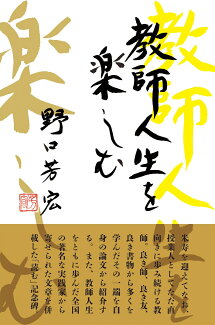 教師人生を
楽しむ
教師人生を
楽しむ
野口芳宏
米寿を迎えてなお、
授業人としてただ真
向きに歩み続ける教
師。良き師、良き友、
良き書物から多くを
学んだその一端を自
身の論文から紹介す
る。また、教師人生
をともに歩んだ全国
の著名な実践家から
寄せられた文章を併
載した「読む」記念碑